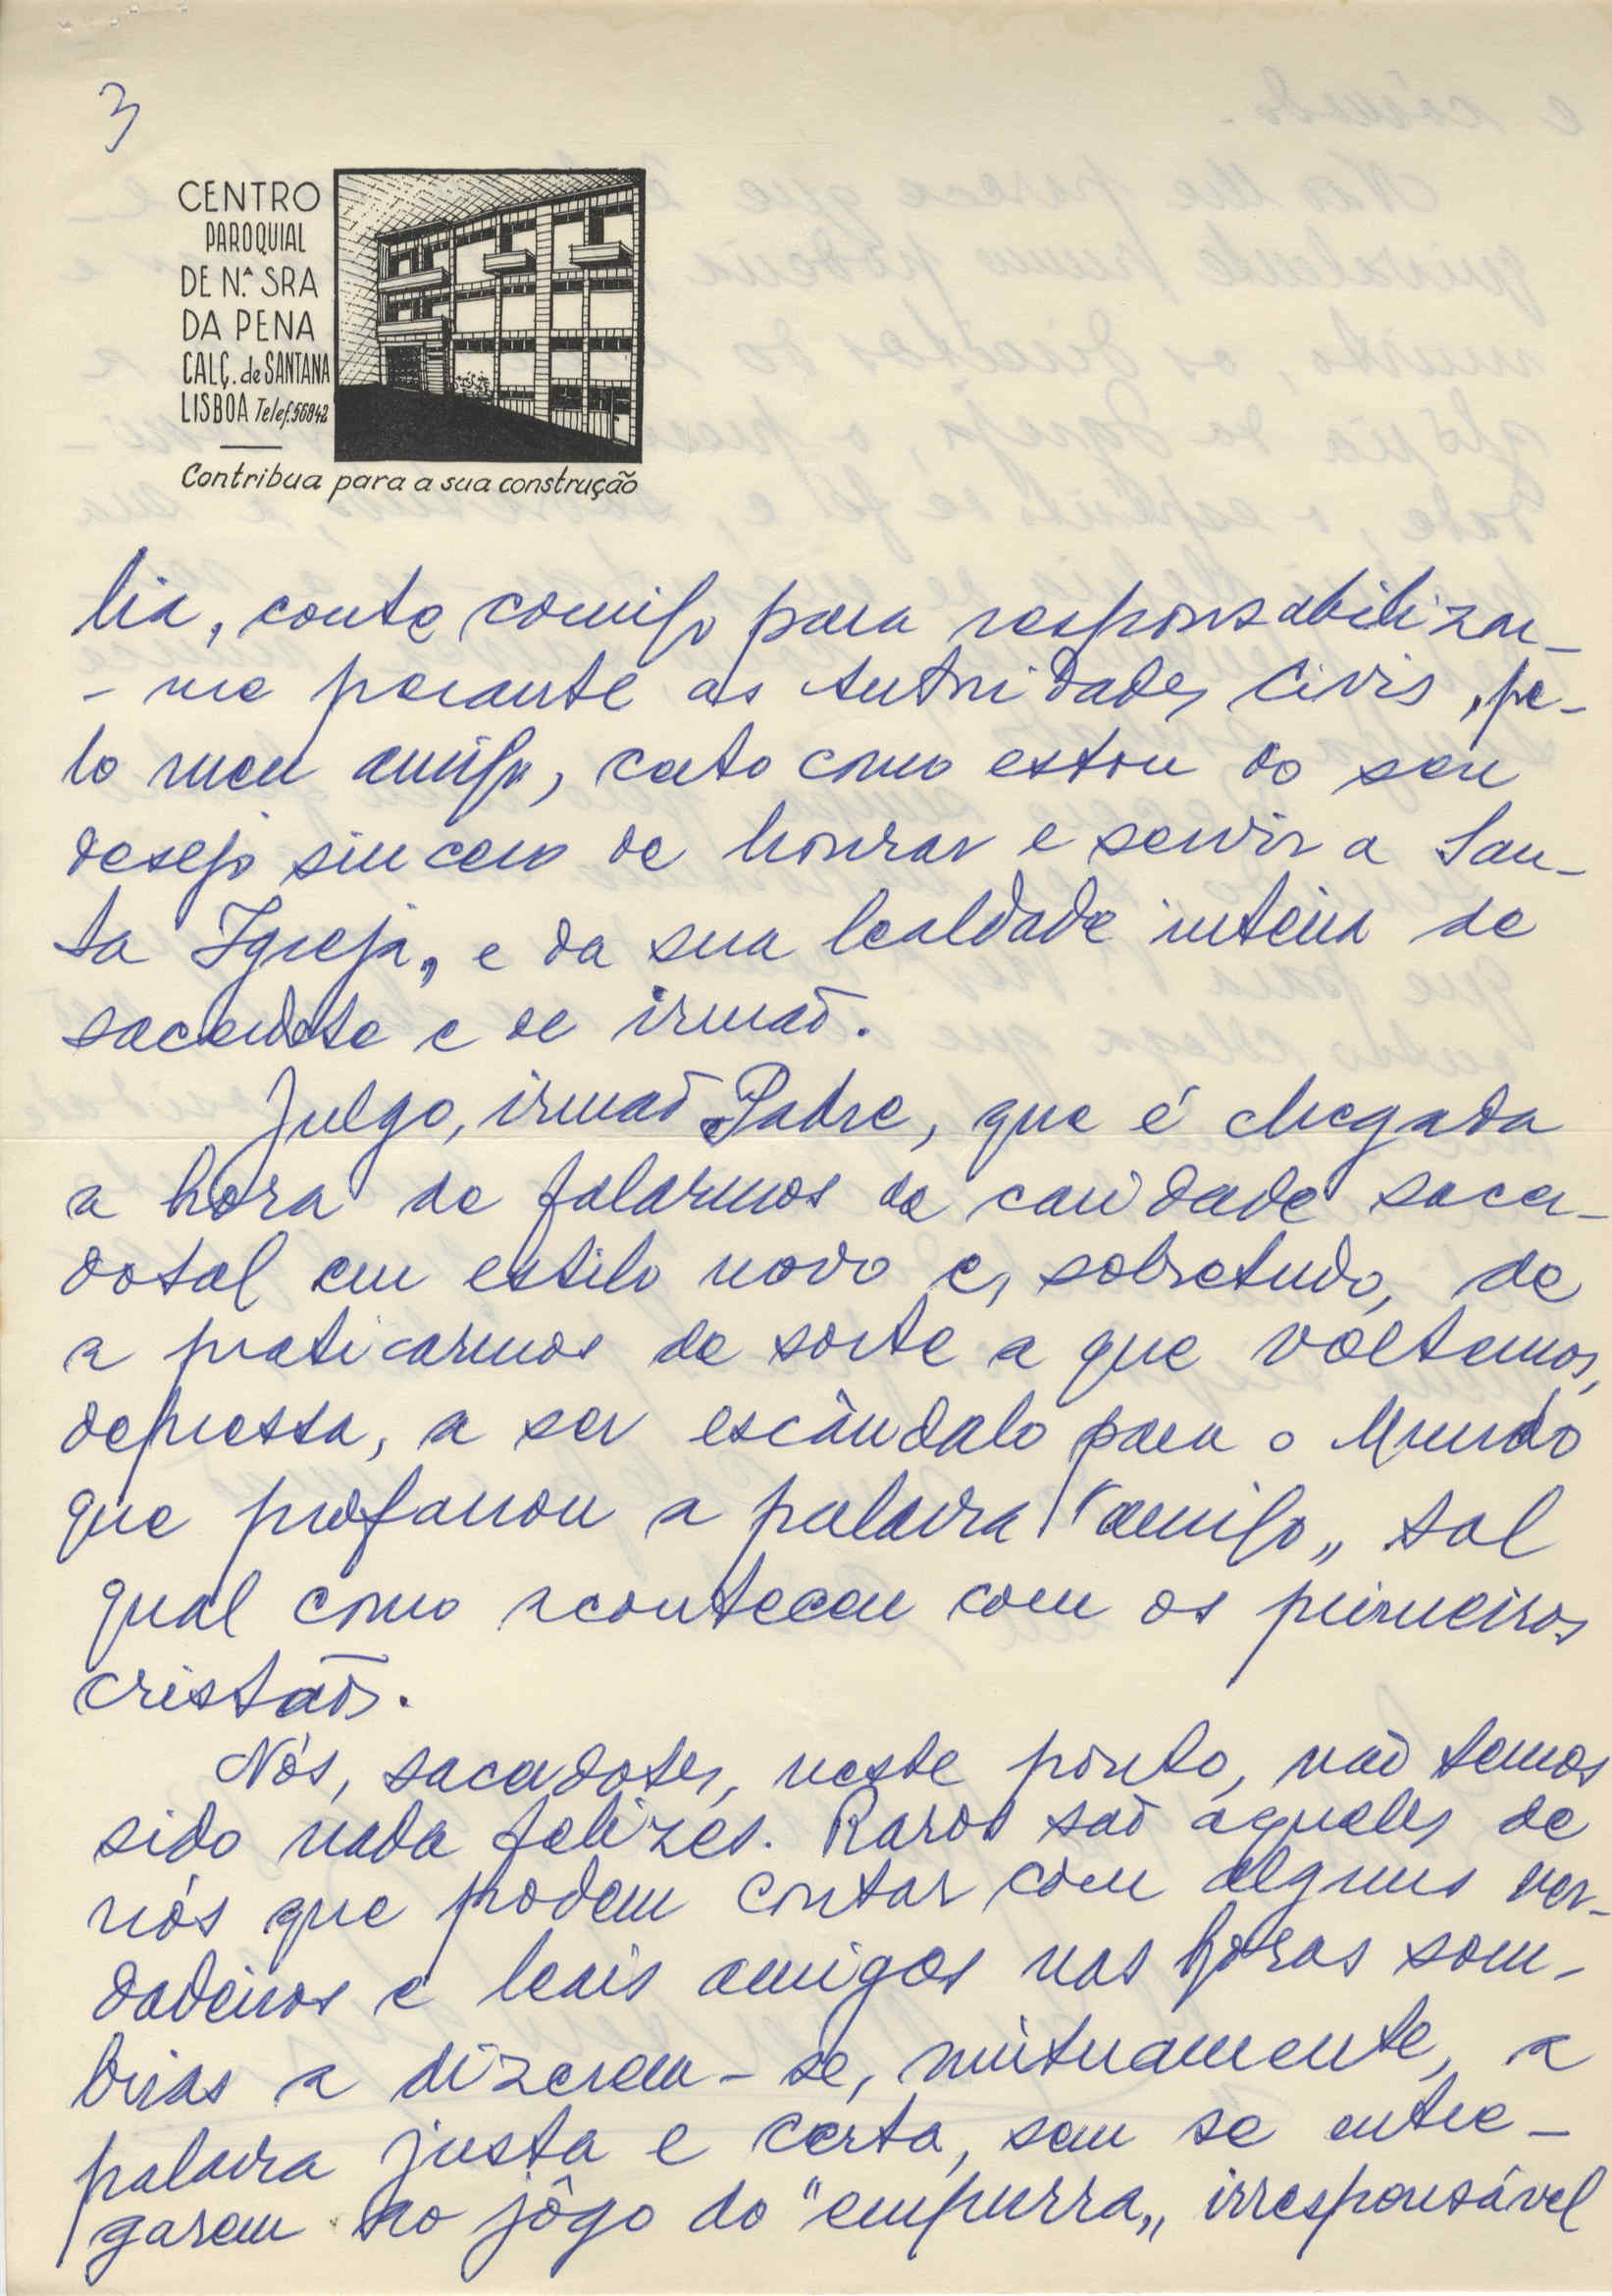 3
CENTRO
PAROQUIAL
DE N.ª SRA
DA PENA
CALÇ. de SANTANA
LISBOA Telef. 56842
Contribua para a sua construção
lia, conte comigo para responsabilizar-
- me perante as Autoridades Civis, pe-
lo meu amigo, certo como estou do seu
desejo sincero de honrar e servir a San-
ta Igreja, e da sua lealdade inteira de
sacerdote e de irmão.
Julgo, irmão Padre, que é chegada
a hora de falarmos de caridade sacer-
dotal em estilo novo e, sobretudo, de
a praticarmos de sorte a que voltemos,
depressa, a ser escândalo para o Mundo
que profanou a palavra "amigo„ tal
qual como aconteceu com os primeiros
cristãos.
Nós, sacerdotes, neste ponto, não temos
sido nada felizes. Raros são aqueles de
nós que podem contar com alguns ver-
dadeiros e leais amigos nas horas som-
brias a dizerem-se, mùtuamente, a
palavra justa e certa, sem se entre-
garem ao jôgo do "empurra„ irresponsável